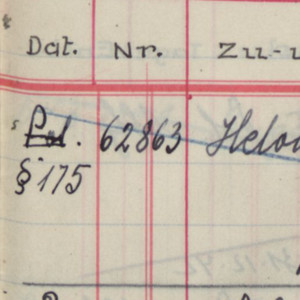 Dat. Nr. Zu-u
Pol. 62863 Helou
§ 175